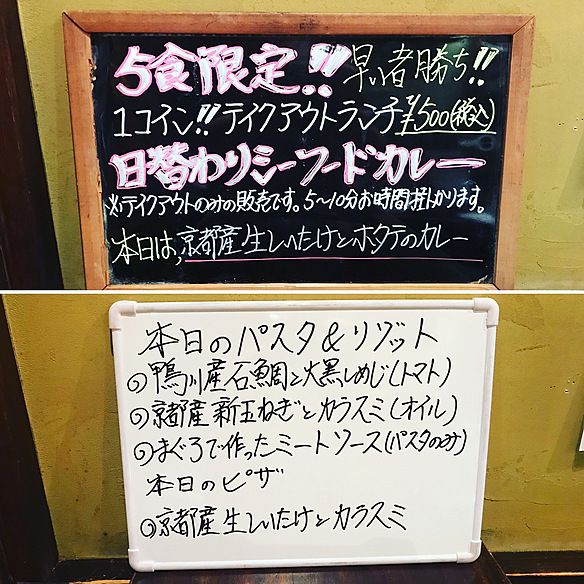 5食限定!! 早い者勝ち!!
1コイン!! テイクアウトランチ ¥500(税込)
日替わりシーフードカレー
※テイクアウトのみの販売です。5〜10分お時間掛かります。
本日は、京都産生しいたけとホタテのカレー
本日のパスタ&リゾット
◎鴨川産石鯛と大黒しめじ(トマト)
◎京都産新玉ねぎとカラスミ(オイル)
◎まぐろで作ったミートソース(パスタのみ)
本日のピザ
◎京都産生しいたけとカラスミ